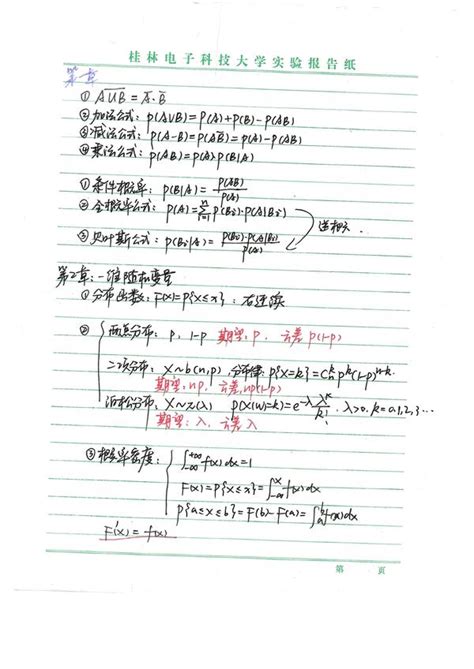 桂林电子科技大学实验报告纸
第一章
① A∪B̅ = A̅·B̅
② 加法公式: P(A∪B)=P(A)+P(B)-P(AB)
③ 减法公式: P(A-B)=P(AB̅)=P(A)-P(AB)
④ 乘法公式: P(AB)=P(A)P(B|A)
① 条件概率: P(B|A)=P(AB)/P(A)
② 全概率公式: P(A)=Σ P(Bi)·P(A|Bi)
③ 贝叶斯公式: P(Bi|A)=P(Bi)·P(A|Bi)/P(A)
第2章: 一维随机变量
① 分布函数: F(x)=P{X≤x} 右连续
② 两点分布: P, 1-P 期望: P, 方差 P(1-P)
二项分布: X~b(n,p), 分布律: P{X=k}=Cₙᵏpᵏ(1-p)ⁿ⁻ᵏ
期望: np, 方差: np(1-p)
泊松分布: X~π(λ) P(X(ω)=k)=e^-λ λᵏ/k!, λ>0, k=0,1,2,3…
期望: λ, 方差 λ
③ 概率密度: ∫₋∞^+∞ f(x)dx=1
F(x)=P{X≤x}=∫₋∞^x f(x)dx
P{a≤x≤b}=F(b)-F(a)=∫ₐᵇ f(x)dx
F′(x)=f(x)
第 页